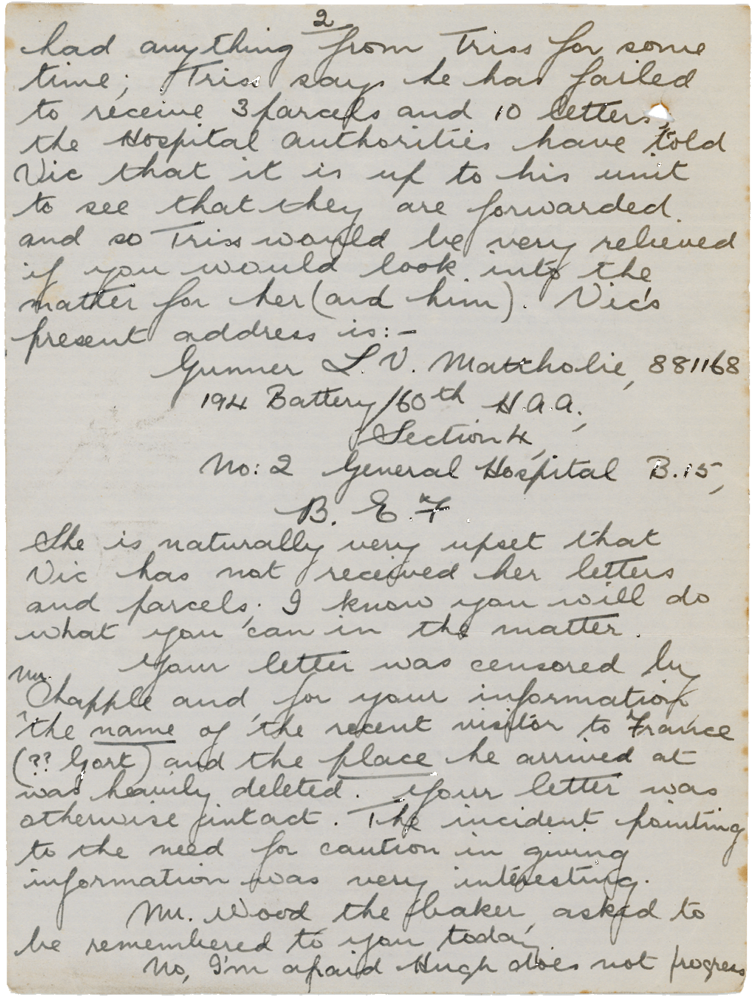 2
had anything from Triss for some
time; Triss says he has failed
to receive 3 parcels and 10 letters,
the Hospital authorities have told
Vic that it is up to his unit
to see that they are forwarded.
and so Triss would be very relieved
if you would look into the
matter for her (and him). Vic's
present address is:-
Gunner L. V. 881168
194 Battery/60th H.A.A.,
Section 4,
No: 2 General Hospital B.15,
B. E. F
She is naturally very upset that
Vic has not received her letters
and parcels. I know you will do
what you can in the matter.
Your letter was censored by
Mr. Chapple and for your information
the name of the recent visitor to France
(?? Gort) and the place he arrived at
was heavily deleted. Your letter was
otherwise intact. The incident pointing
to the need for caution in giving
information was very interesting.
Mr. Wood the baker, asked to
be remembered to you today.
No, I'm afraid Hugh does not progress